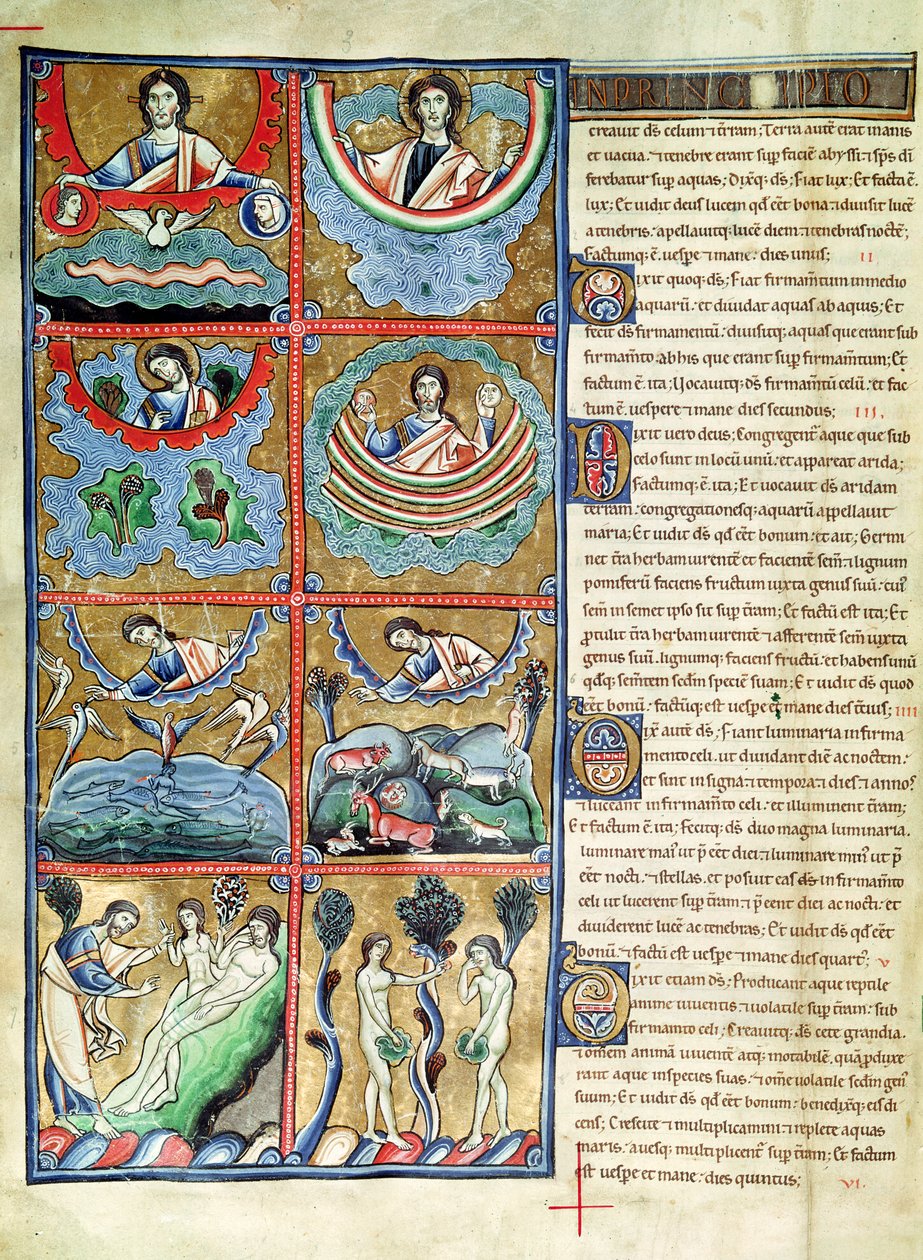 IN PRINCIPIO
creavit dś celum ⁊ t̄ram; Terra autē erat inanis
et vacua. ⁊ tenebre erant sup faciē abyssi. ⁊ sps dī
ferebatur sup aquas; Dixq; dś; Fiat lux; Et facta ē
lux; Et vidit deus lucem qđ eēt bona ⁊ diuisit lucē
a tenebris. apellavitq; lucē diem ⁊ tenebras noctē;
Factumq; ē uespe ⁊ mane. dies unus; II
Dixit quoq; dś; Fiat firmamentum in medio
aquarū. et diuidat aquas ab aquis; Et
fecit dś firmamentū. diuisitq; aquas que erant sub
firmam̄to. ab his que erant sup firmam̄tum; Et
factum ē ita; Uocauitq; dś firmam̄tū celū. et fac
tum ē. uespere ⁊ mane dies secundus; III.
Dixit uero deus; Congregent aque que sub
celo sunt in locū unū. et appareat arida;
Factumq; ē ita; Et uocauit dś aridam
terram. congregationesq; aquarū appellauit
maria; Et uidit dś qđ eēt bonum. et ait; Germi
net t̄ra herbam uirentē et facientē sem̄. ⁊ lignum
pomiferū faciens fructum iuxta genus suū. cui'
sem̄ in semet ipso sit sup t̄ram; Et factū est ita; Et
protulit t̄ra herbam uirentē ⁊ afferentē sem̄ iuxta
genus suū. lignumq; faciens fructū. et habens unū
qđq; sem̄tem sedm speciē suam; Et uidit dś quod
eēt bonū. factūq; est uespe et mane dies t̄cius; IIII
Dix̄ autē dś; Fiant luminaria in firma
mento celi. ut diuidant diē ac noctem.
et sint in signa ⁊ tempora ⁊ dies ⁊ annos
⁊ luceant in firmam̄to celi. et illuminent t̄ram;
Et factum ē ita; Fecitq; dś duo magna luminaria.
luminare mai' ut p̄eēt diei ⁊ luminare min' ut p̄
eēt nocti. ⁊ stellas. et posuit eas dś in firmam̄to
celi ut lucerent sup t̄ram ⁊ p̄eent diei ac nocti. et
diuiderent lucē ac tenebras; Et uidit dś qđ eēt
bonū. ⁊ factū est uespe ⁊ mane dies quart'; V
Dixit etiam dś; Producant aque reptile
anime uiuentis ⁊ uolatile sup t̄ram. sub
firmam̄to celi; Creauitq; dś cete grandia.
⁊ omem animā uiuentē atq; motabilē. quā pduxe
rant aque in species suas. ⁊ ome uolatile sedm gen'
suum; Et uidit dś qđ eēt bonum. benedixq; eis di
cens; Crescite ⁊ multiplicamini ⁊ replete aquas
maris. auesq; multiplicent sup t̄ram; Et factum
est uespe et mane. dies quintus; VI.